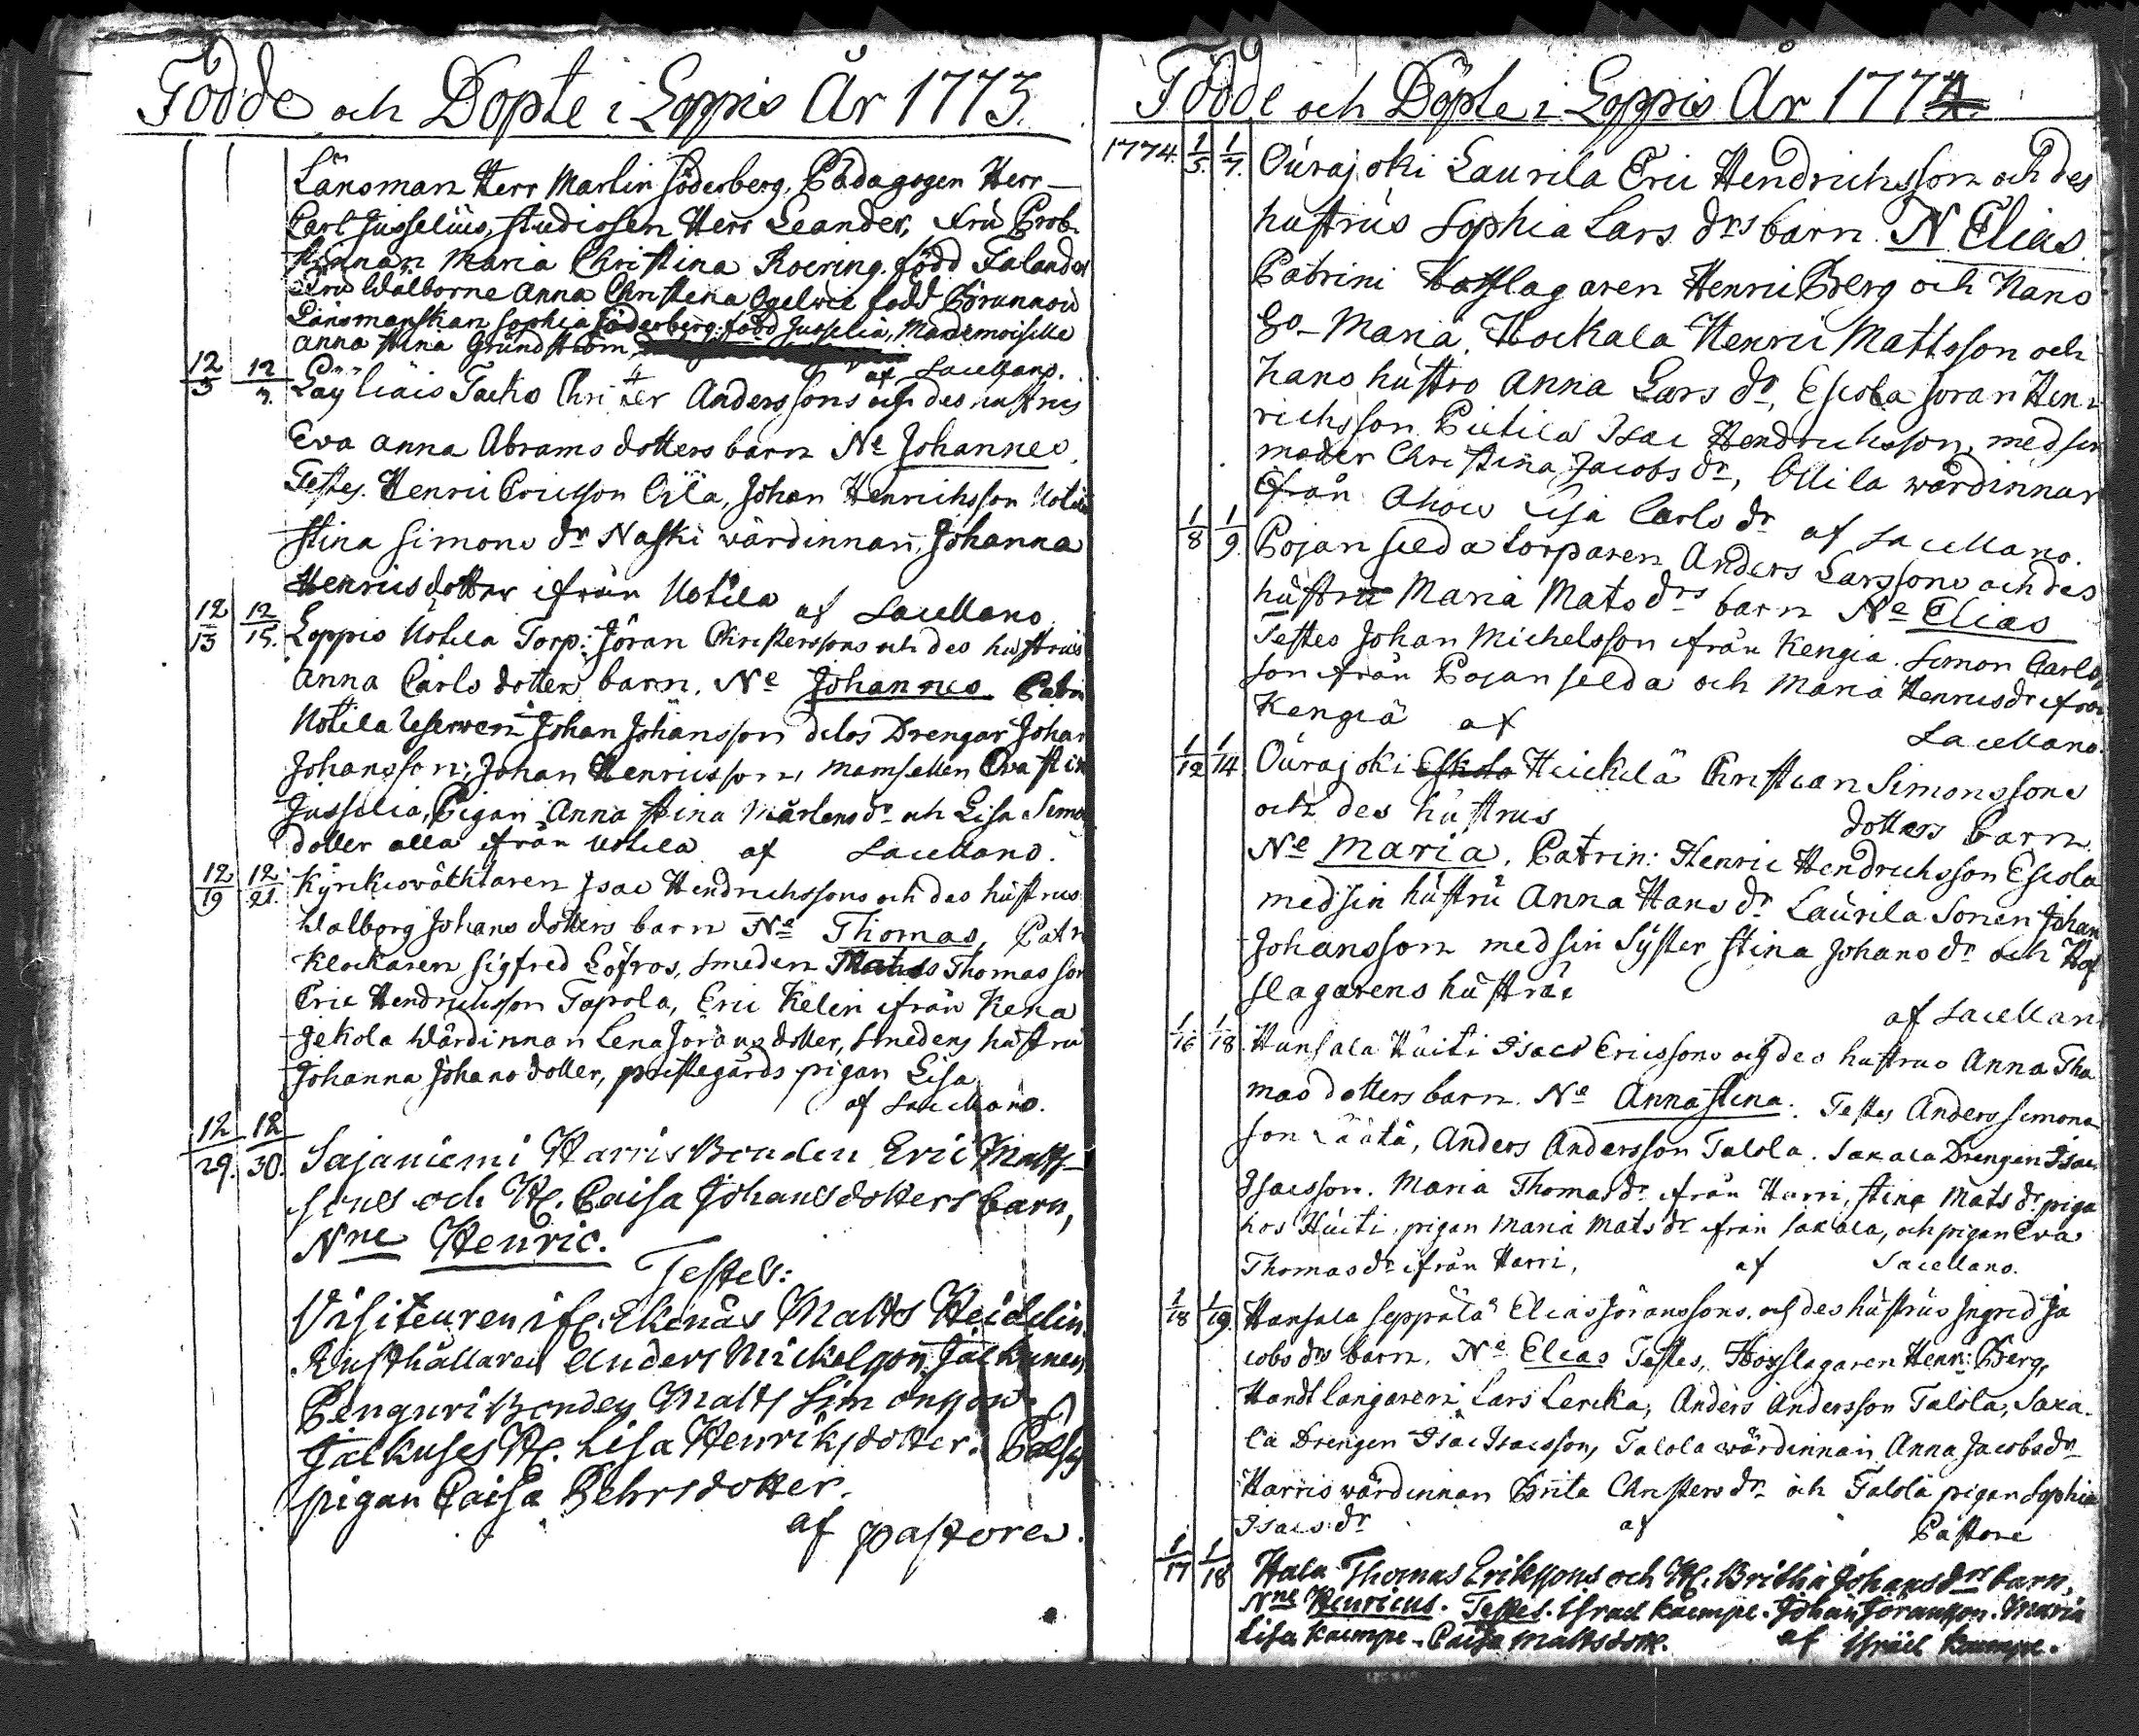 Födde och Döpte i Loppis År 1773.
Länsman Herr Martin Söderberg, Pädagogen Herr
Carl Jusselius, Studiosen Herr Leander, Fru Prob-
stinnan Maria Christina Roering född Talander
Fru Wälborne Anna Christina Ogelwie född Brunnow
Länsmanskan Sophia Söderberg född Jusselia, Mademoiselle
Anna Stina Grundström,
af Sacellano.
12/3 12/5. Läyliäis Tacko Christer Anderssons och des hustrus
Eva Anna Abrams dotters barn Ne Johannes.
Testes. Henric Ericsson Cilä, Johan Henrichsson Uotila
Stina Simons dr Naski wärdinnan, Johanna
Henricsdotter ifrån Uotila af Sacellano.
12/13 12/15. Loppis Uotila Torp: Jöran Christerssons och des hustrus
Anna Carls dotters barn. Ne Johannes Patri
Uotila Reserven Johan Johansson delos Drengar Johan
Johansson, Johan Henricsson, Mamsellen Eva Stin
Jusselia, Pigan Anna Stina Mårtens dr och Lisa Simo
dotter alla ifrån Uotila af Sacellano.
12/19 12/21. Kyrkiowäcktaren Isac Hendrichssons och des hustrus
Walborg Johans dotters barn Ne Thomas, Patr
Klockaren Sigfred Löfros, Smeden Thomas son
Eric Hendrichsson Topola, Eric Kelin ifrån Kena
Jekola Wärdinnan Lena Jöransdotter, Smedens hustru
Johanna Johans dotter, prästegårds pigan Lisa
af Sacellano.
12/29. 12/30. Sajaniemi Harris Bonden Eric Matts-
sons och H. Caisa Johansdotters barn,
Nne Henric.
Testes:
Visiteuren ifr. Ekenäs Matts Heidelin.
Rusthållaren Anders Mickelsson Jäckunen
Penguri Bonden Matts Simonsson.
Jäckuses H. Lisa Henriksdotter.
pigan Caisa Behrsdotter.
af pastore.
Födde och Döpte i Loppis År 1774.
1774. 1/5. 1/7. Ourajoki Laurila Eric Hendrichsson och des
hustrus Sophia Lars drs barn. N Elias.
Patrini Hofslagaren Henric Berg och Hans
Maria, Hockala Henric Mattsson och
hans hustro Anna Lars dr, Escola Joran Hen-
richsson Pietilä Isac Hendrichsson, med sin
moder Christina Jacobs dr, Ollila wärdinnan
ifrån Lisa Carls dr af Sacellano.
1/8 1/9. Pojanselda torparen Anders Larssons och des
hustru Maria Mats drs barn Ne Elias
Testes Johan Michelsson ifrån Kengiä. Simon Carls
son ifrån Pojanselda och Maria Henricsdr ifrån
Kengiä af Sacellano.
1/12 1/14 Ourajoki Heickilä Christian Simonssons
och des hustrus dotters barn
Ne Maria. Patrin: Henric Hendrichsson Escola
med sin hustru Anna Hans dr Laurila Sonen Johan
Johansson med sin Syster Stina Johans dr och Hof
slagarens hustru
af Sacellan
1/16 1/18. Hunsala Huiti Isacs Ericssons och des hustrus Anna Tho
mas dotters barn. Ne Annastina. Testes Anders Simons
son Räätä, Anders Andersson Talola. Sakala Drengen Isac
Isacsson. Maria Thomas dr ifrån Harri, Stina Mats dr piga
hos Huiti, pigan Maria Mats dr ifrån Sakala, och pigan Eva
Thomas dr ifrån Harri, af Sacellano.
1/18 1/19. Hunsala Seppälä Elias Joranssons och des hustrus Ingrid Ja
cobs drs barn. Ne Elias Testes, Hofslagaren Henr: Berg,
Handtlangaren Lars Lercka, Anders Andersson Talola, Saka-
la Drengen Isac Isacsson, Talola wärdinnan Anna Jacobs dr
Harris wärdinnan Brita Christers dr och Talola pigan Sophia
Isacs dr af Pastore
1/17 1/18 Hala Thomas Erikssons och H. Britha Johans drs barn,
Nne Henricus. Testes. Israel Kaempe. Johan Joransson. Maria
Lisa Kaempe. Caisa Mattsdott. af Israel Kaempe.